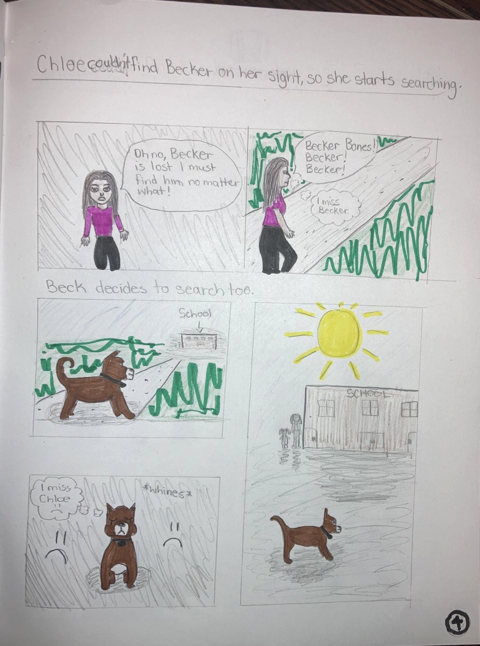 Chloe couldn't find Becker on her sight, so she starts searching.
Oh no, Becker
is lost I must
find him, no matter
what!
Becker Bones!
Becker!
Becker!
I miss
Becker.
Beck decides to search too.
School
SCHOOL
I miss
Chloe
*whines*
4